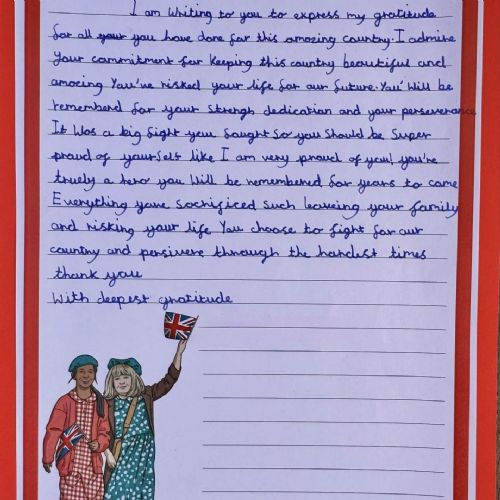 I am writing to you to express my gratitude
for all your you have done for this amazing country. I admire
your commitment for keeping this country beautiful and
amazing You've risked your life for our future. You' will be
rememberd for your strengh dedication and your perseverance
It was a big fight you fought so you should be super
proud of yourself like I am very proud of you! you're
truely a hero you will be remembered for years to come
Everything youve sacrificed such leaveing your family
and risking your life You choose to fight for our
country and persivere through the hardest times
thank you
With deepest gratitude